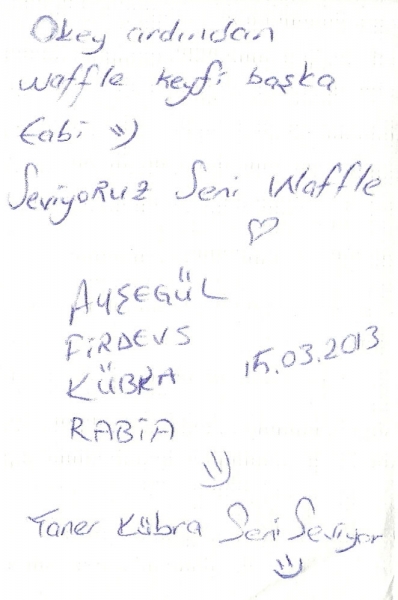 Okey ardından
waffle keyfi başka
tabi =)
Seviyoruz Seni Waffle
♡
AYŞEGÜL
FİRDEVS
KÜBRA
RABİA
15.03.2013
=)
Taner Kübra Seni Seviyor
=)